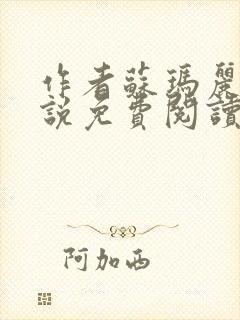 作者蘇瑪麗
說免費閱讀
阿加西